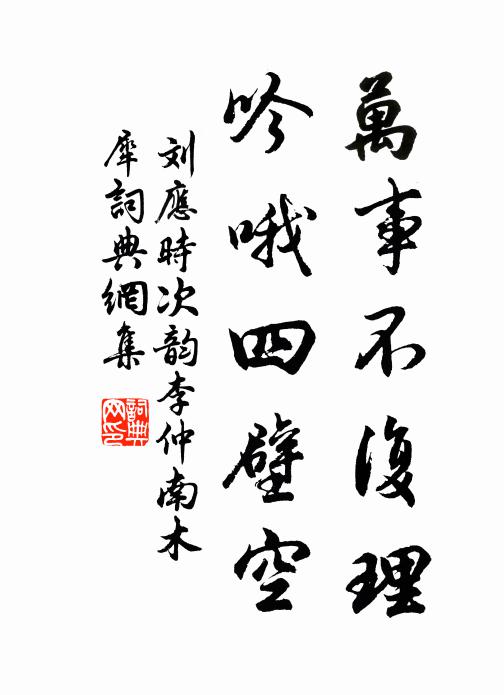 萬事不復理
吟哦四壁空
刘應時次韵李仲南木
犀詞典網集
詞典
网印